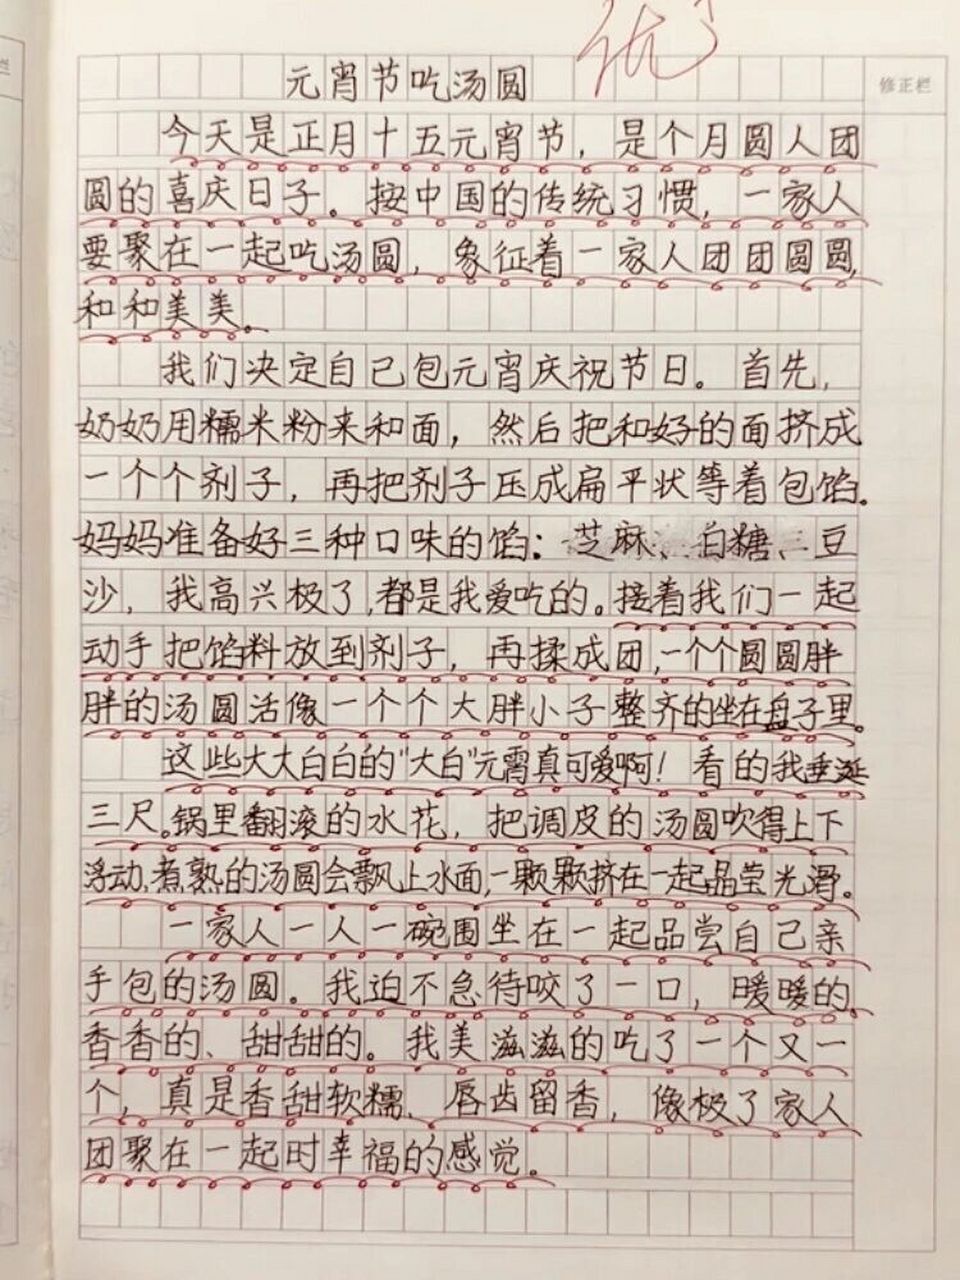 优
修正栏
元宵节吃汤圆
今天是正月十五元宵节，是个月圆人团
圆的喜庆日子。按中国的传统习惯，一家人
要聚在一起吃汤圆，象征着一家人团团圆圆，
和和美美。
我们决定自己包元宵庆祝节日。首先，
奶奶用糯米粉来和面，然后把和好的面挤成
一个个剂子，再把剂子压成扁平状等着包馅。
妈妈准备好三种口味的馅：芝麻、白糖、豆
沙，我高兴极了，都是我爱吃的。接着我们一起
动手把馅料放到剂子，再揉成团，一个个圆圆胖
胖的汤圆活像一个个大胖小子整齐的坐在盘子里。
这些大大白白的"大白"元宵真可爱啊！看的我垂涎
三尺。锅里翻滚的水花，把调皮的汤圆吹得上下
浮动、煮熟的汤圆会飘上水面，一颗颗挤在一起晶莹光滑。
一家人一人一碗围坐在一起品尝自己亲
手包的汤圆。我迫不急待咬了一口，暖暖的、
香香的、甜甜的。我美滋滋的吃了一个又一
个，真是香甜软糯、唇齿留香，像极了家人
团聚在一起时幸福的感觉。